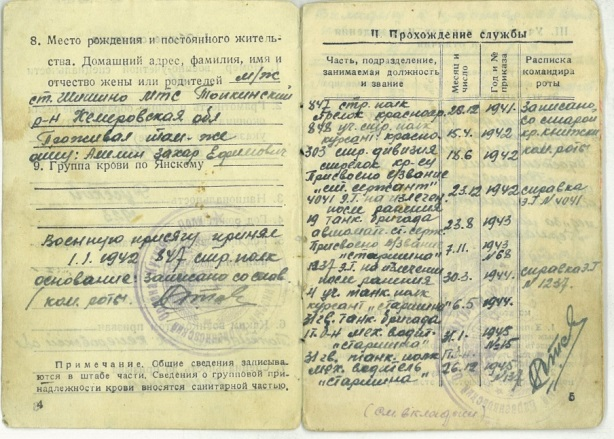 8. Место рождения и постоянного житель-
ства. Домашний адрес, фамилия, имя и
отчество жены или родителей М/ж
ст. МТС
р-н Кемеровская обл
Проживал там-же
отец: Амелин Захар Ефимович
9. Группа крови по Янскому
Военную присягу принял
1.1.1942 847 стр. полк
основание: записано со слов
ком. роты.
Примечание. Общие сведения записыва-
ются в штабе части. Сведения о групповой при-
надлежности крови вносятся санитарной частью.
4
II Прохождение службы
Часть, подразделение, занимаемая должность и звание
Месяц и число
Год и № приказа
Расписка командира роты
847 стр. полк
стрелок красноарм. 26.12 1941. Записано
848 уч. стр. полк со старой
курсант красно. 15.4. 1942 кр. книжки
303 стр. дивизия ком. роты
стрелок кр-ец 18.6 1942
Присвоено звание
"ст. сержант" 23.12 1942 справка
4041 Э.Г. на излечен. Э.Г. N 4041
после ранения
19 танк. бригада 23.8 1943
автомат. ст. серж.
Присвоено звание 7.11. 1943
"старшина" №68
1237 Э.Г. на излечении
после ранения 30.3. 1944. справка Э.Г.
N 1237.
уч. танк. полк
курсант "старшина" 6.5 1944.
31 гв. танк. бригада
мех. водит. 1. 1945
"старшина" №15
31 гв. танк. полк
мех. водитель 26.12 1945
"старшина"
(см вкладыш)
5